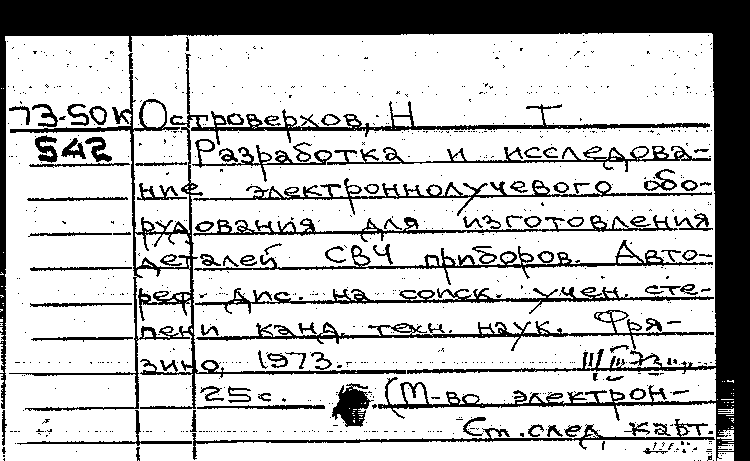 73-50К Островерхов, Н Т
542 Разработка и исследова-
ние электроннолучевого обо-
рудования для изготовления
деталей СВЧ приборов. Авто-
реф. дис. на соиск. учен. сте-
пени канд. техн. наук. Фря-
зино, 1973.
25 с. (М-во электрон-
См. след. карт.